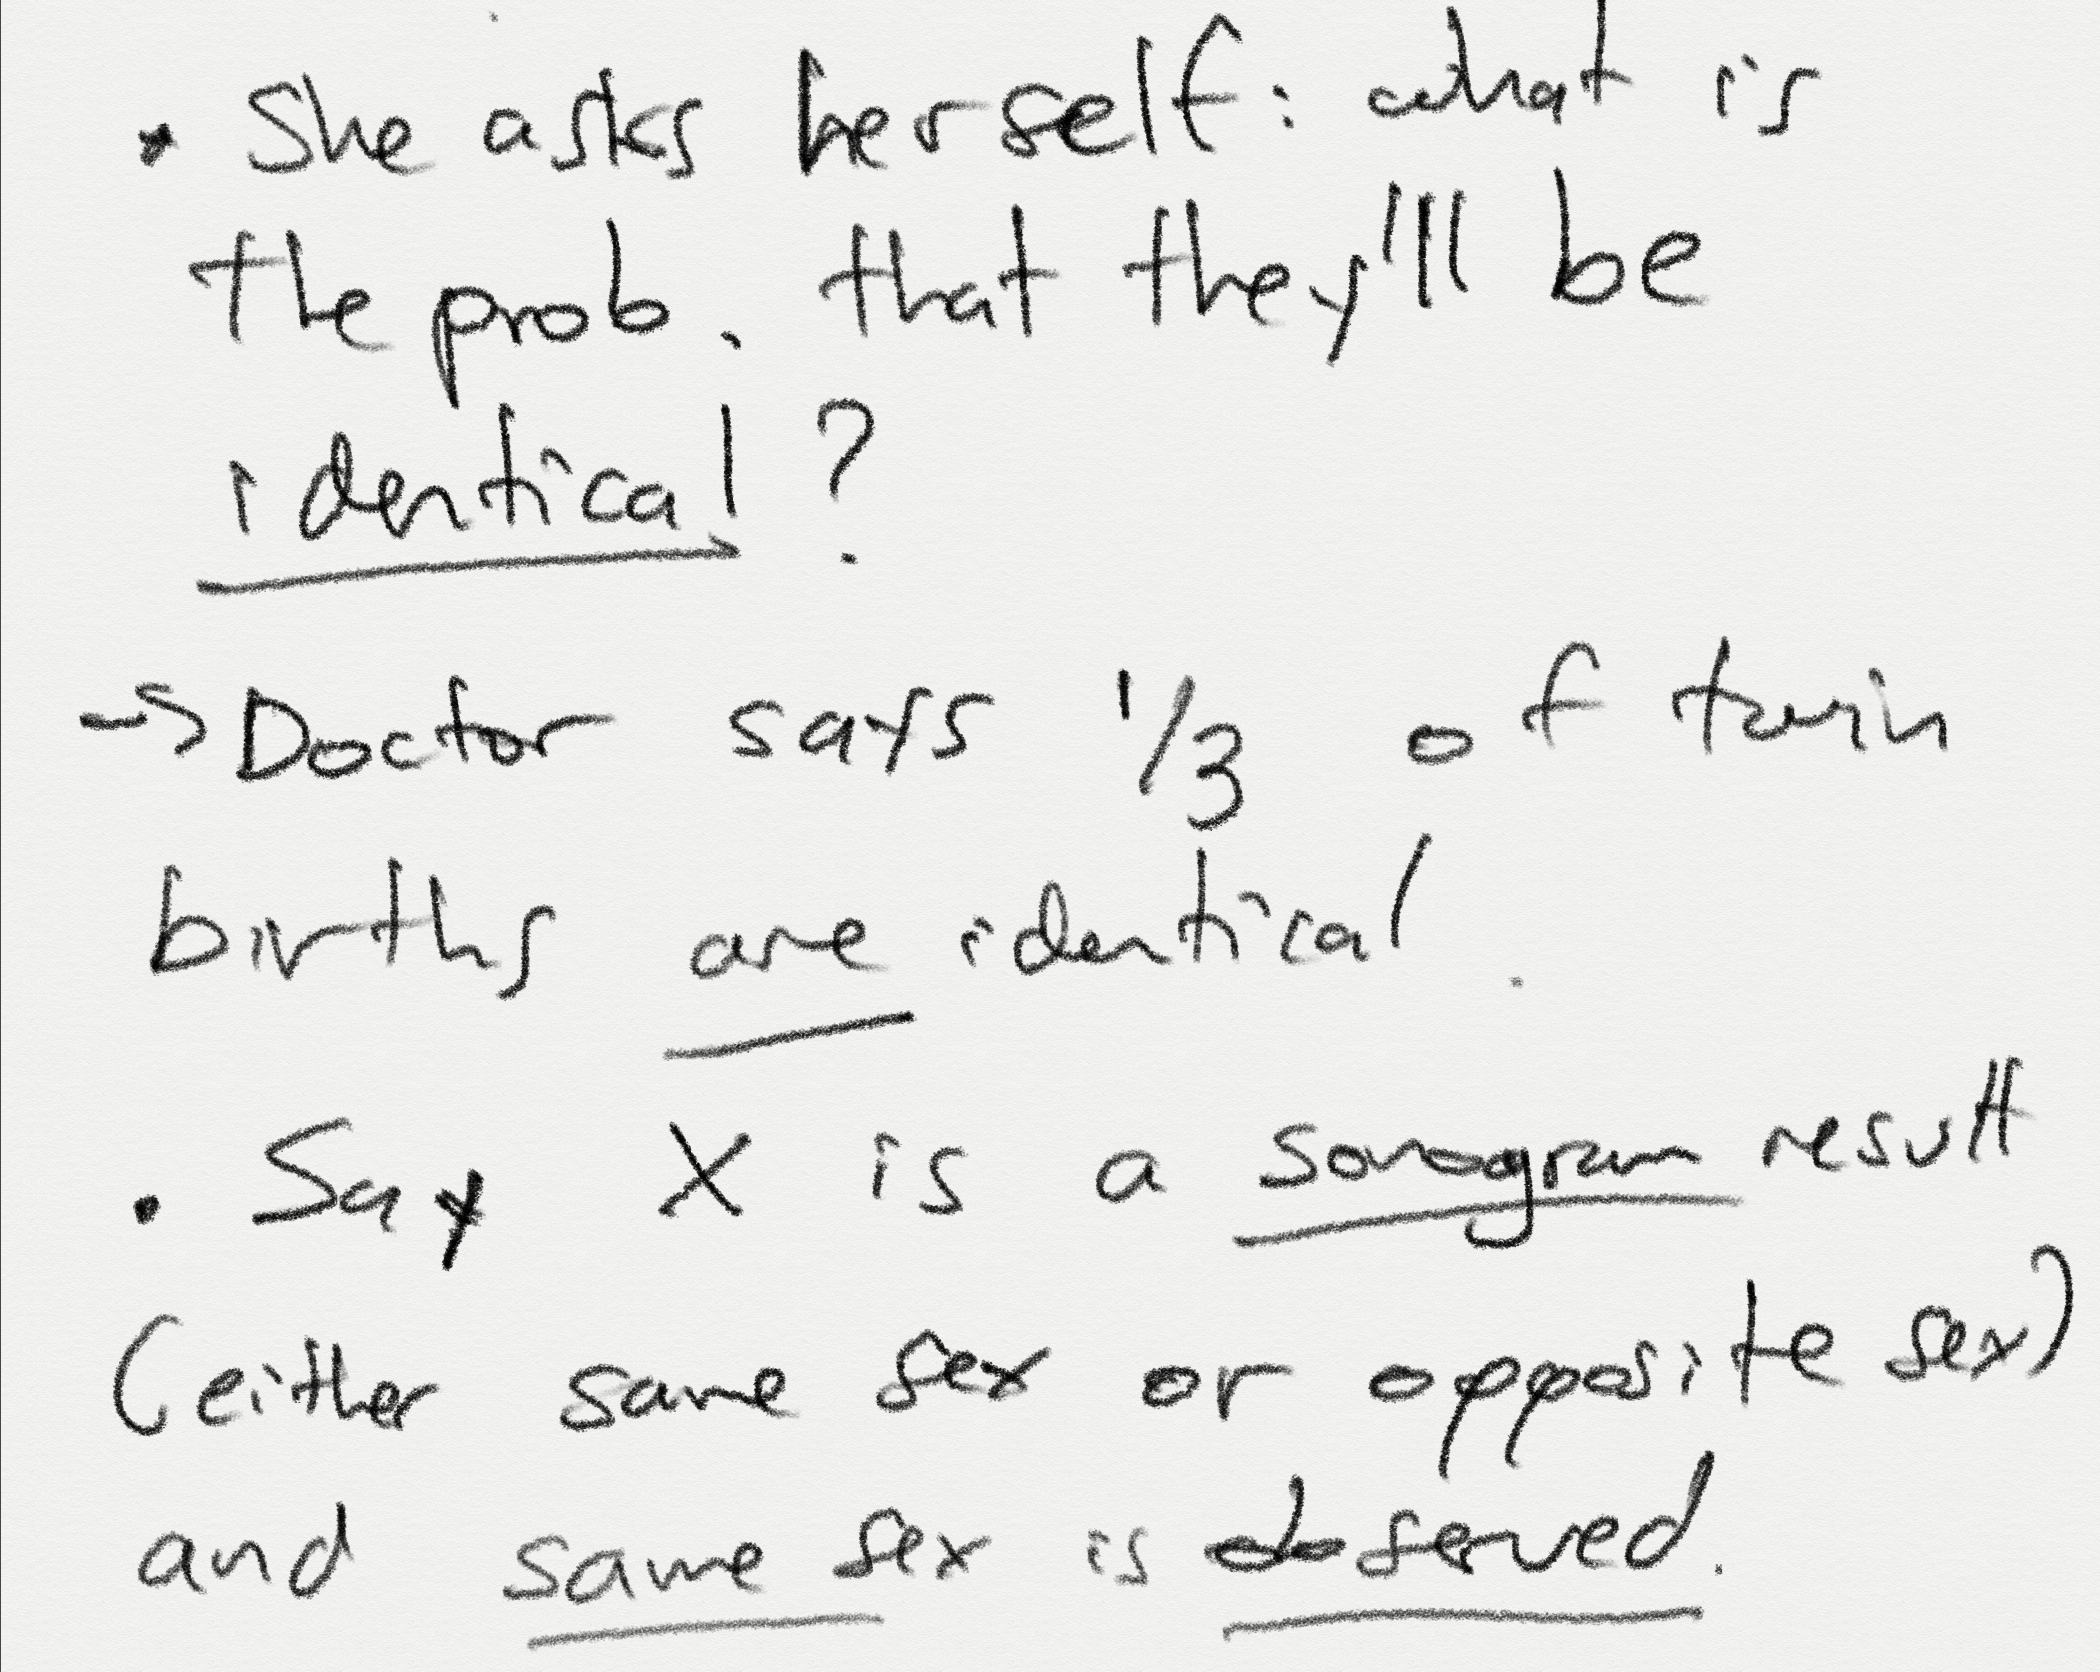 • She asks herself: what is
the prob. that they'll be
identical?
→ Doctor says 1/3 of twin
births are identical.
• Say X is a sonogram result
(either same sex or opposite sex)
and same sex is observed.